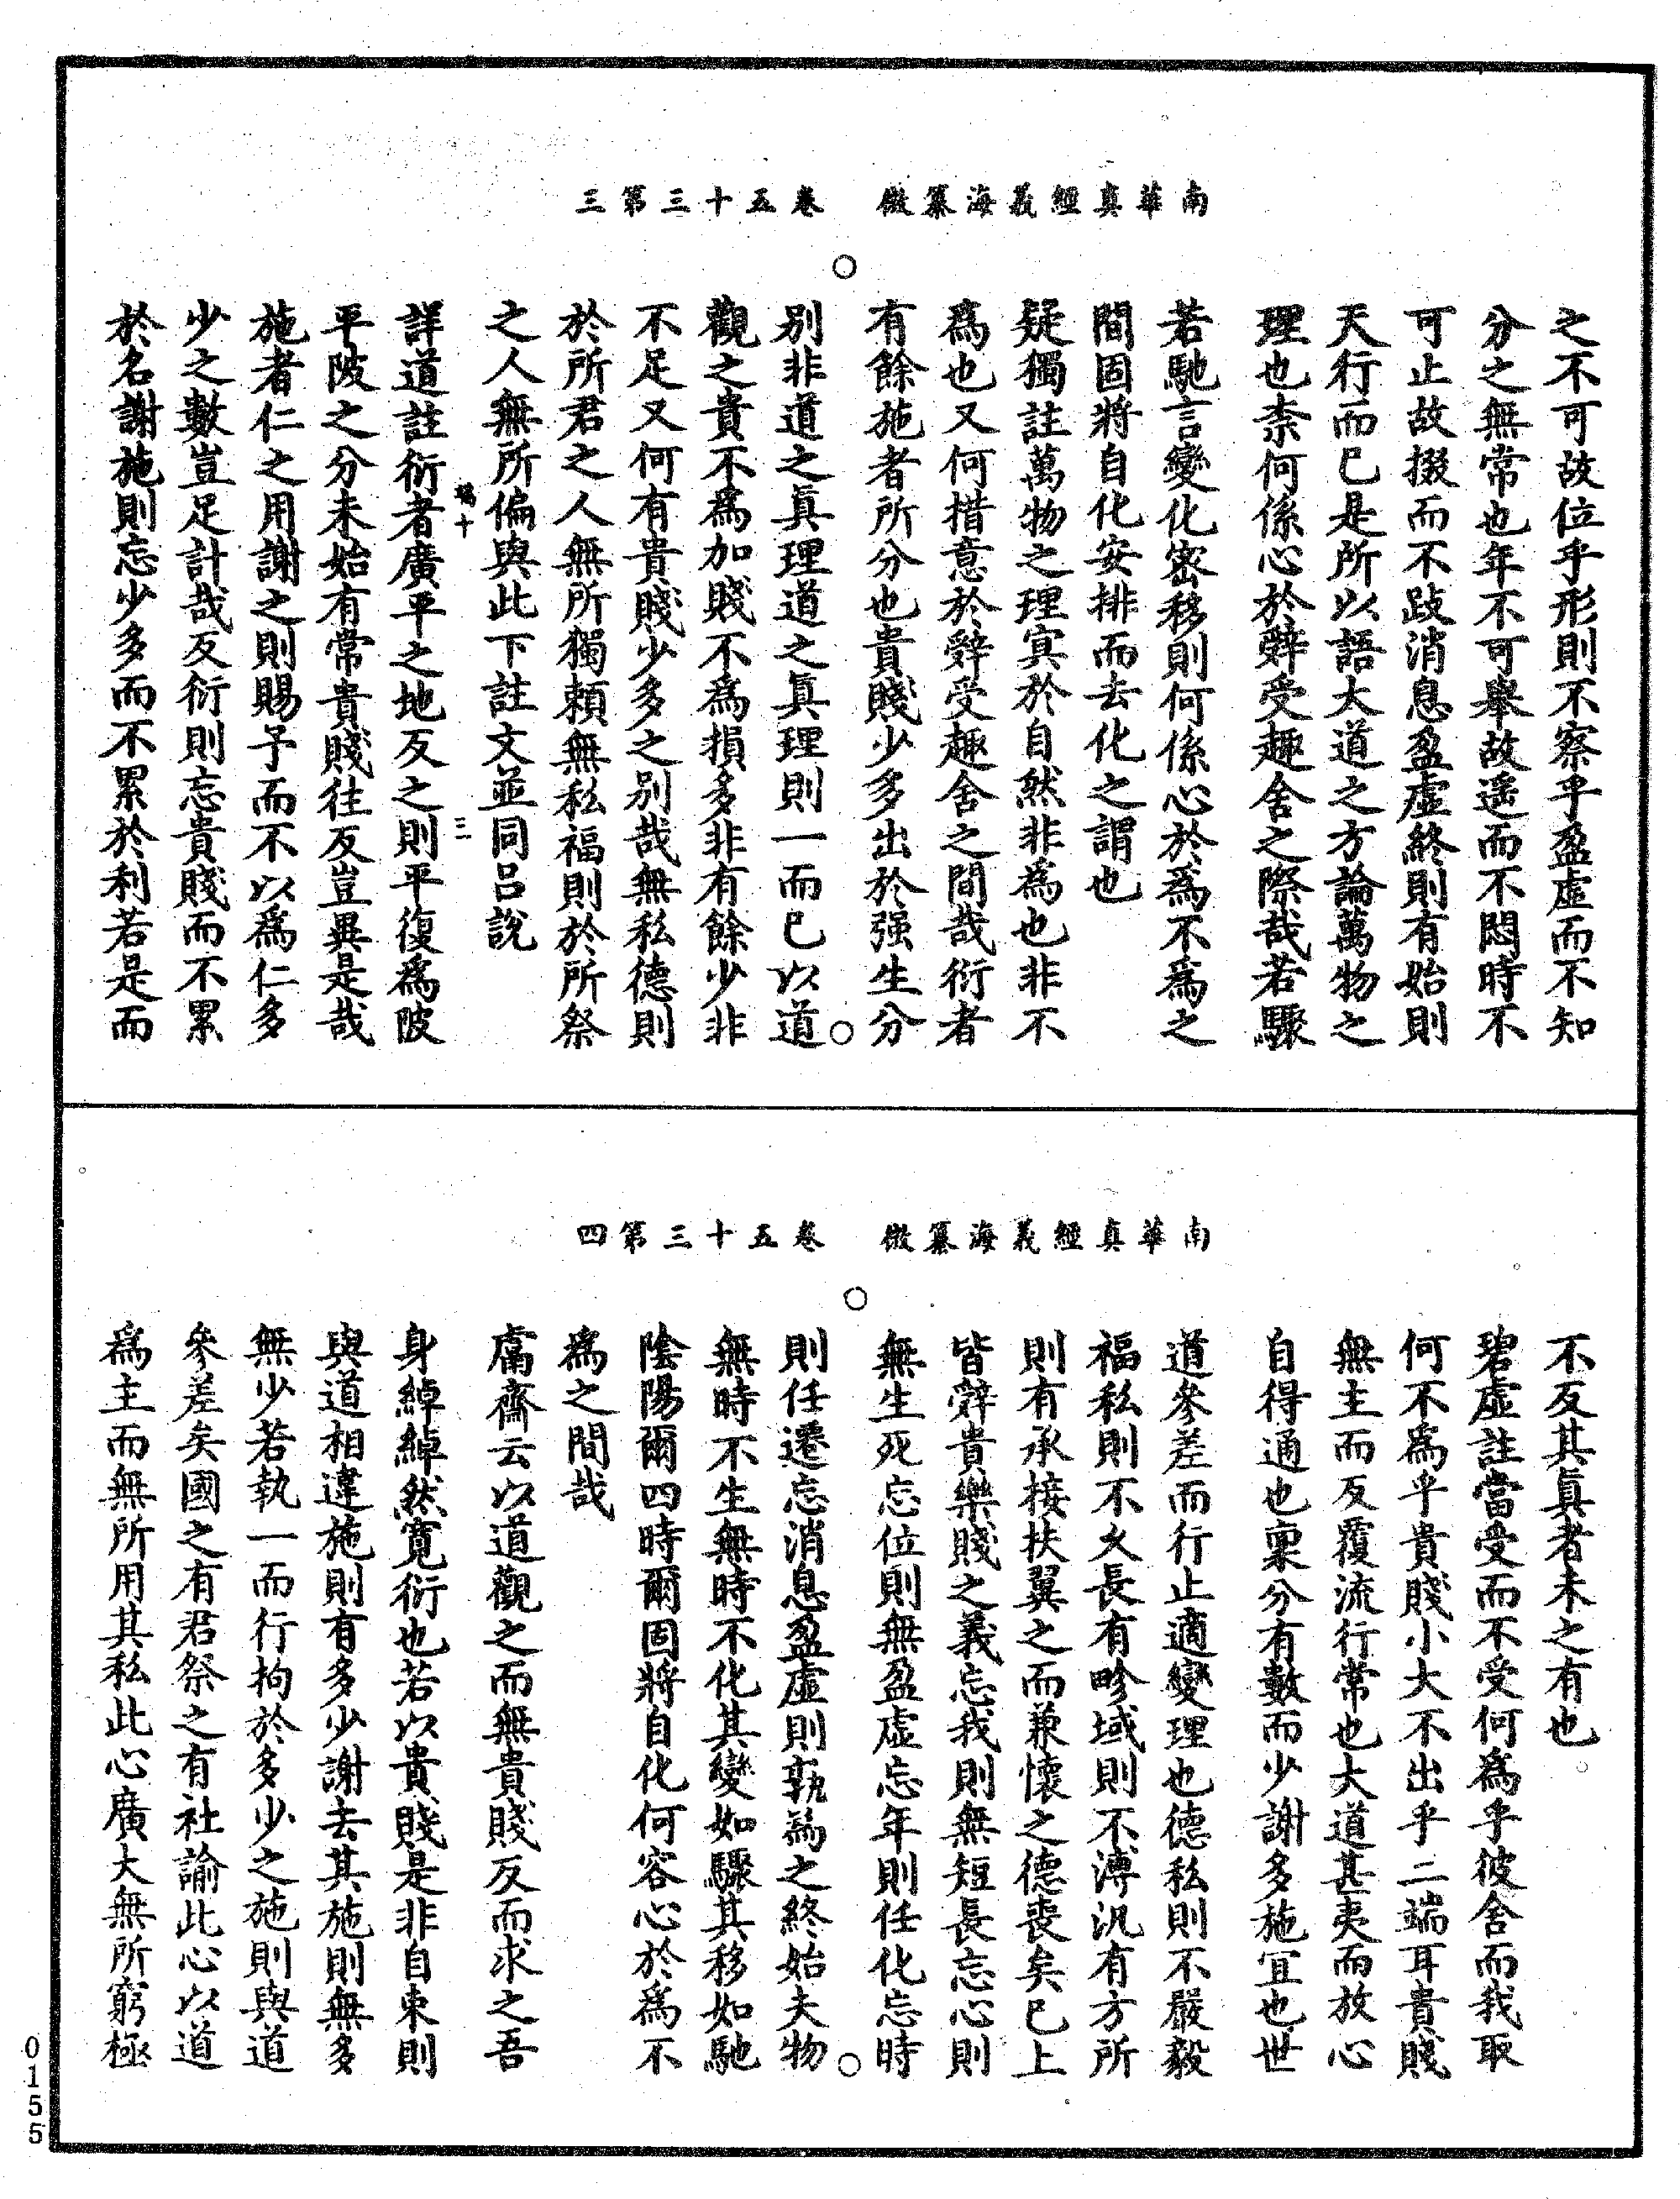 南華真經義海纂微　卷五十三第三
之不可故位乎形則不察乎盈虛而不知
分之無常也年不可舉故遥而不悶時不
可止故掇而不跂消息盈虛終則有始則
天行而已是所以語大道之方論萬物之
理也柰何係心於辭受趣舍之際哉若驟
若馳言變化密移則何係心於為不為之
間固將自化安排而去化之謂也
疑獨註萬物之理㝠於自然非為也非不
為也又何措意於辭受趣舍之間哉衍者
有餘施者所分也貴賤少多出於强生分
別非道之眞理道之眞理則一而已以道
觀之貴不為加賤不為損多非有餘少非
不足又何有貴賤少多之別哉無私德則
於所君之人無所獨頼無私福則於所祭
之人無所偏與此下註文並同吕說
詳道註衍者廣平之地反之則平復為陂
平陂之分未始有常貴賤往反豈異是哉
施者仁之用謝之則賜予而不以為仁多
少之數豈足計哉反衍則忘貴賤而不累
於名謝施則忘少多而不累於利若是而
三
南華真經義海纂微　卷五十三第四
不反其眞者未之有也
碧虛註當受而不受何為乎彼舍而我取
何不為乎貴賤小大不出乎二端耳貴賤
無主而反覆流行常也大道甚夷而放心
自得通也稟分有數而少謝多施冝也世
道參差而行止適變理也德私則不嚴毅
福私則不久長有畛域則不溥汎有方所
則有承接扶翼之而兼懷之德喪矣已上
皆辭貴樂賤之義忘我則無短長忘心則
無生死忘位則無盈虛忘年則任化忘時
則任遷忘消息盈虛則孰為之終始夫物
無時不生無時不化其變如驟其移如馳
陰陽爾四時爾固將自化何容心於為不
為之間哉
鬳齋云以道觀之而無貴賤反而求之吾
身綽綽然寛衍也若以貴賤是非自束則
與道相違施則有多少謝去其施則無多
無少若執一而行拘於多少之施則與道
參差矣國之有君祭之有社諭此心以道
為主而無所用其私此心廣大無所窮極
0155